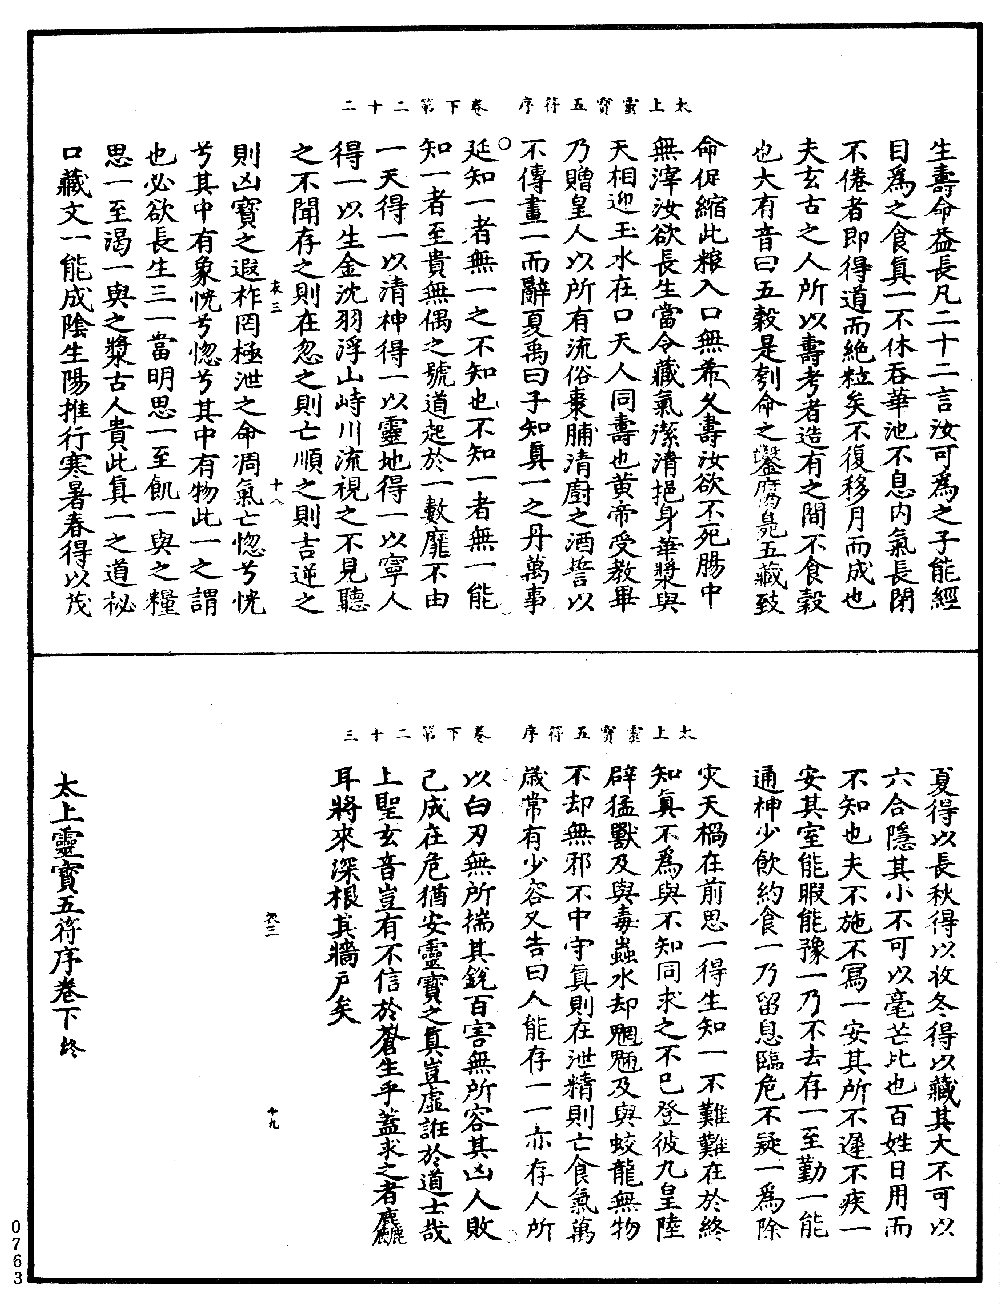 太上靈寶五符序　卷下第二十二
生壽命益長凡二十二言汝可為之子能經
目為之食真一不休吞華池不息内氣長閉
不倦者即得道而絶粒矣不復移月而成也
夫玄古之人所以壽考者造有之間不食穀
也大有音曰五穀是刳命之鑿腐臰五藏致
命促縮此粮入口無希久壽汝欲不死腸中
無滓汝欲長生當令藏氣潔清挹身華漿與
天相迎玉水在口天人同壽也黄帝受教畢
乃贈皇人以所有流俗棗脯清廚之酒誓以
不傳畫一而辭夏禹曰子知真一之丹萬事
延知一者無一之不知也不知一者無一能
知一者至貴無偶之號道起於一數靡不由
一天得一以清神得一以靈地得一以寧人
得一以生金沈羽浮山峙川流視之不見聽
之不聞存之則在忽之則亡順之則吉逆之
衣三　十八
則凶寶之遐柞罔極泄之命凋氣亡惚兮恍
兮其中有象恍兮惚兮其中有物此一之謂
也必欲長生三一當明思一至飢一與之糧
思一至渴一與之漿古人貴此真一之道祕
口藏文一能成隂生陽推行寒暑春得以茂
太上靈寶五符序　卷下第二十三
夏得以長秋得以收冬得以藏其大不可以
六合隱其小不可以毫芒比也百姓日用而
不知也夫不施不寫一安其所不遲不疾一
安其室能暇能豫一乃不去存一至勤一能
通神少飲約食一乃留息臨危不疑一為除
灾天榻在前思一得生知一不難難在於終
知真不為與不知同求之不已登彼九皇陸
辟猛獸及與毒蟲水却魍魎及與蛟龍無物
不却無邪不中守真則在泄精則亡食氣萬
歲常有少容又告曰人能存一一亦存人所
以白刃無所揣其銳百害無所容其凶人敗
己成在危猶安靈寶之真豈虚誑於道士哉
上聖玄音豈有不信於蒼生乎蓋求之者麤
耳將來深根其牆戶矣
衣三　十九
太上靈寶五符序卷下終
0763